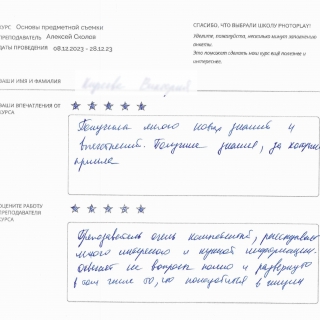 КУРС Основы предметной съемки
ПРЕПОДАВАТЕЛЬ Алексей Сколов
ДАТЫ ПРОВЕДЕНИЯ 08.12.2023 - 28.12.23
СПАСИБО, ЧТО ВЫБРАЛИ ШКОЛУ PHOTOPLAY!
Уделите, пожалуйста, несколько минут заполнению
анкеты.
Это поможет сделать наш курс ещё полезнее и
интереснее.
ВАШИ ИМЯ И ФАМИЛИЯ
ВАШИ ВПЕЧАТЛЕНИЯ ОТ
КУРСА
Получила много новых знаний и
впечатлений. Получила знания, за которыми
пришла
ОЦЕНИТЕ РАБОТУ
ПРЕПОДАВАТЕЛЯ
КУРСА
Преподаватель очень компетентный, рассказывал
много интересной и нужной информации.
на вопросы полно и развернуто
в том числе то, что понадобится в